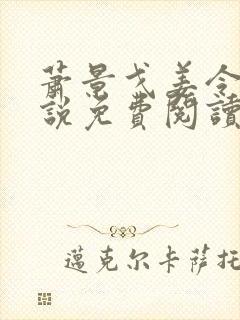 萧景戈姜令
說免費閱讀
邁克尔卡萨托